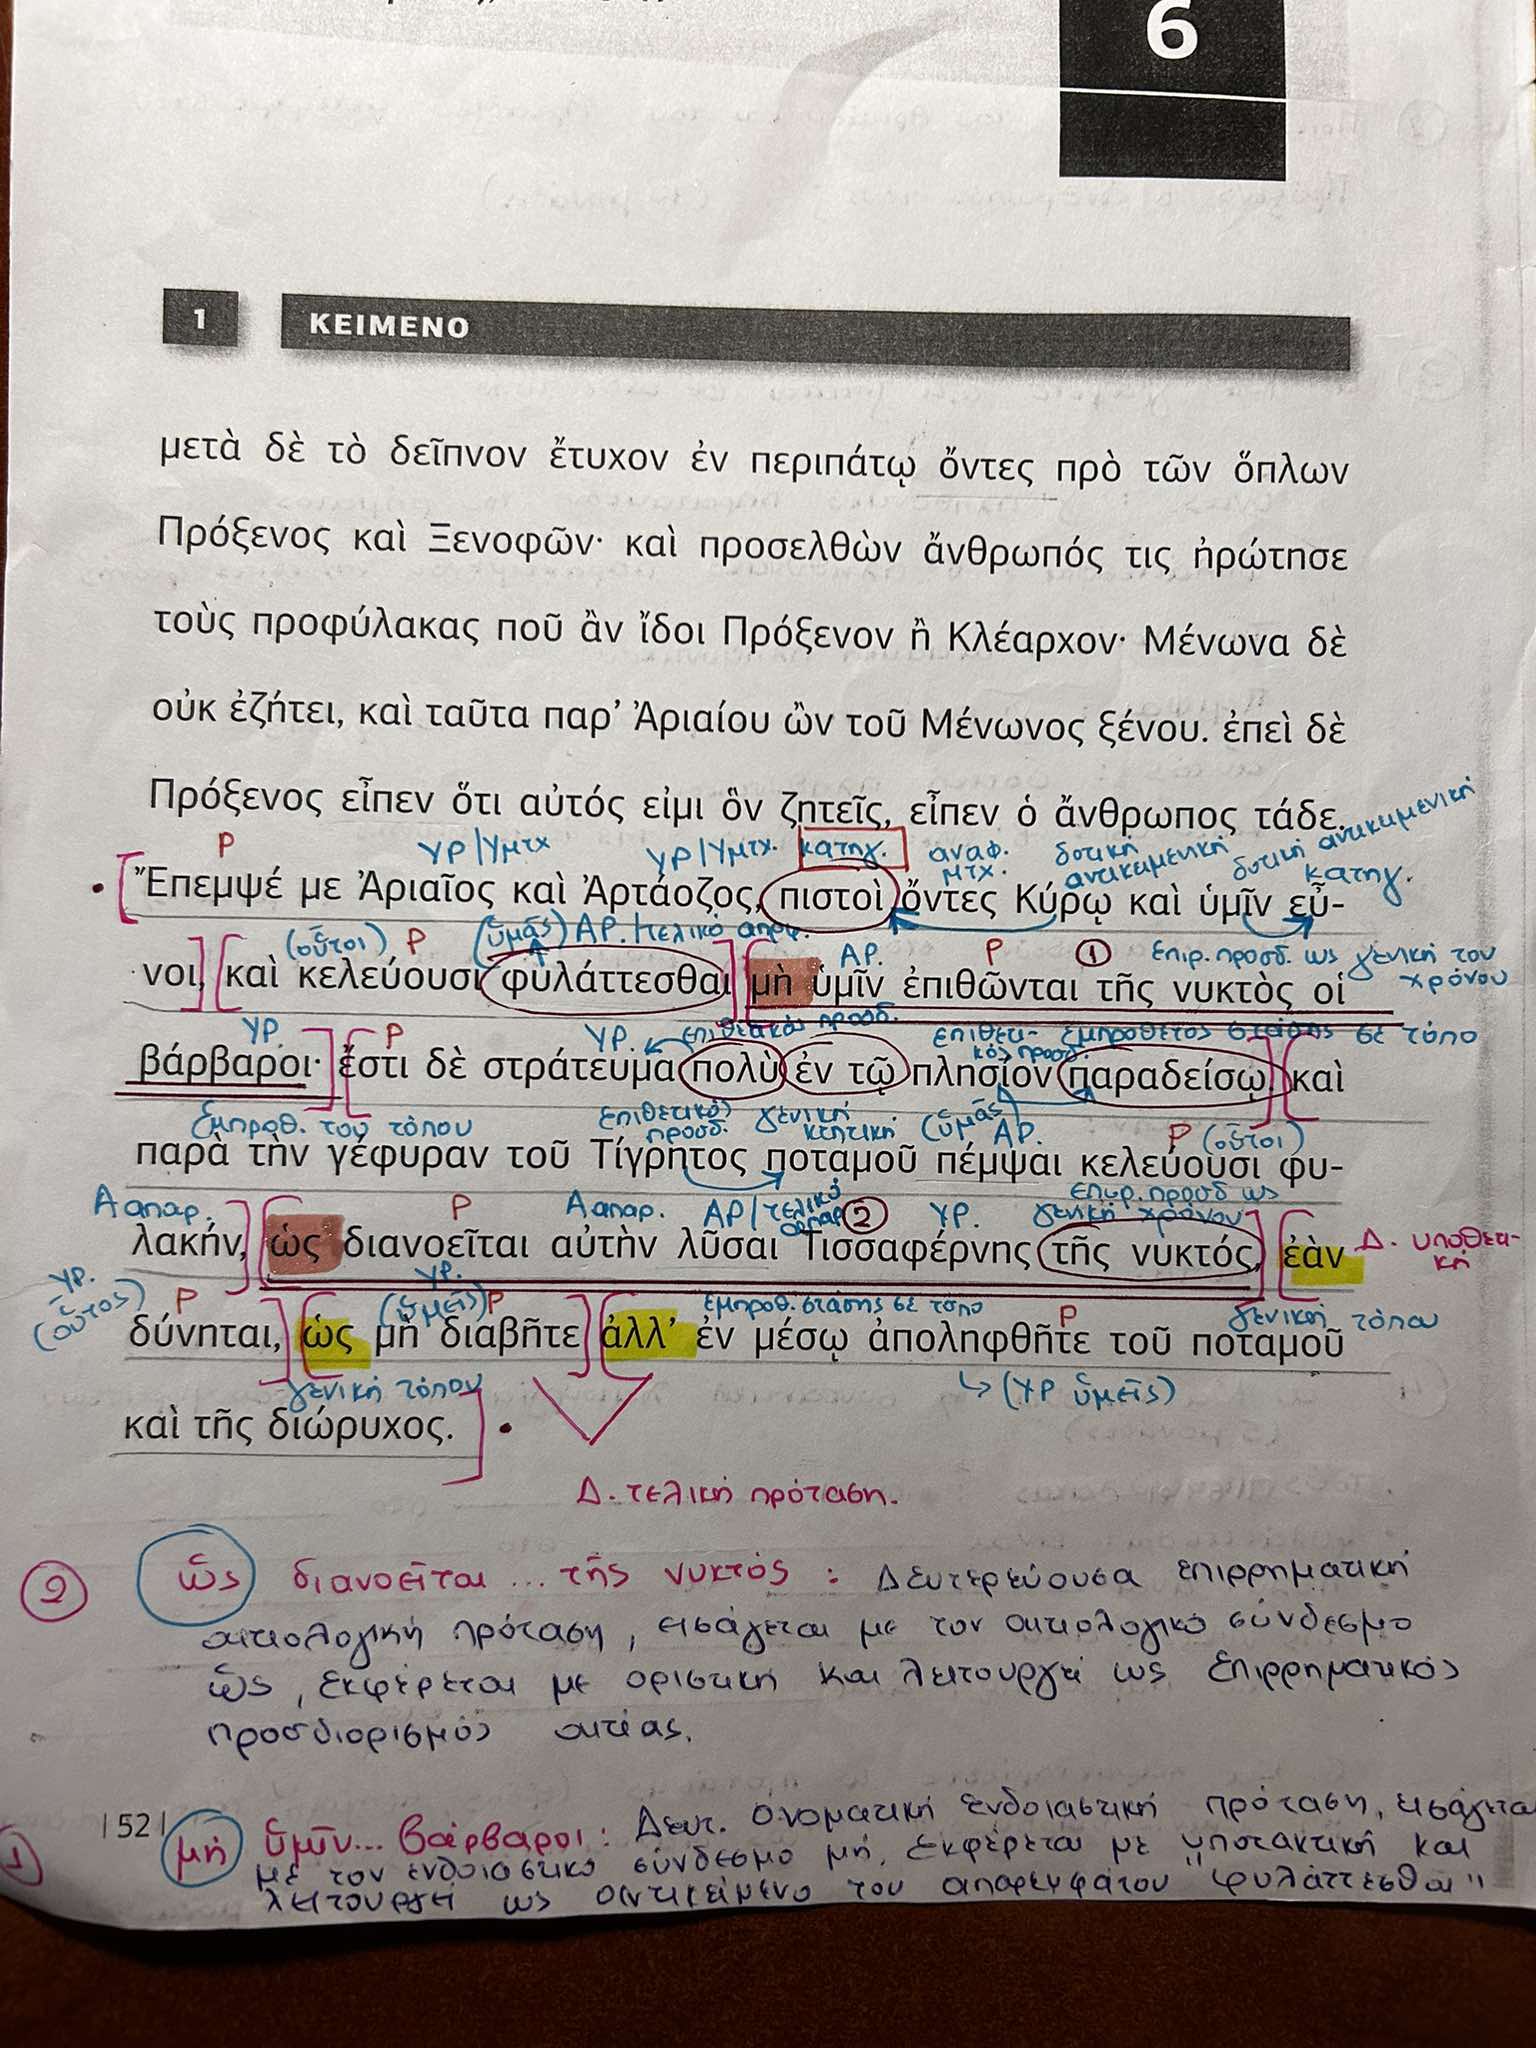 6
1 ΚΕΙΜΕΝΟ
μετὰ δὲ τὸ δεῖπνον ἔτυχον ἐν περιπάτῳ ὄντες πρὸ τῶν ὅπλων
Πρόξενος καὶ Ξενοφῶν· καὶ προσελθὼν ἄνθρωπός τις ἠρώτησε
τοὺς προφύλακας ποῦ ἂν ἴδοι Πρόξενον ἢ Κλέαρχον· Μένωνα δὲ
οὐκ ἐζήτει, καὶ ταῦτα παρ’ Ἀριαίου ὢν τοῦ Μένωνος ξένου. ἐπεὶ δὲ
Πρόξενος εἶπεν ὅτι αὐτός εἰμι ὃν ζητεῖς, εἶπεν ὁ ἄνθρωπος τάδε.
Ρ ΥΡ/Υμτχ ΥΡ/Υμτχ. κατηγ. αναφ. μτχ. δοτική αντικειμενική δοτική αντικειμενική κατηγ.
Ἔπεμψέ με Ἀριαῖος καὶ Ἀρτάοζος, πιστοὶ ὄντες Κύρῳ καὶ ὑμῖν εὖ-
(οὗτοι) Ρ (ὑμᾶς) ΑΡ./τελικό απρφ. ΑΡ. Ρ 1 επιρ. προσδ. ως γενική του χρόνου
νοι, καὶ κελεύουσι φυλάττεσθαι μὴ ὑμῖν ἐπιθῶνται τῆς νυκτὸς οἱ
ΥΡ. Ρ ΥΡ. επιθετικός προσδ. επιθετι-κός προσδ. εμπρόθετος στάσης σε τόπο
βάρβαροι· ἔστι δὲ στράτευμα πολὺ ἐν τῷ πλησίον παραδείσῳ. καὶ
εμπροθ. του τόπου επιθετικός προσδ. γενική κτητική (ὑμᾶς) ΑΡ. Ρ (οὗτοι)
παρὰ τὴν γέφυραν τοῦ Τίγρητος ποταμοῦ πέμψαι κελεύουσι φυ-
Α απαρ. Ρ Α απαρ. ΑΡ/τελικό απαρ 2 ΥΡ. επιρ. προσδ ως γενική χρόνου
λακήν, ὡς διανοεῖται αὐτὴν λῦσαι Τισσαφέρνης τῆς νυκτός, ἐὰν Δ. υποθετι-κή
ΥΡ. (οὗτος) Ρ ΥΡ. (ὑμεῖς) Ρ εμπροθ. στάσης σε τόπο Ρ γενική τόπου
δύνηται, ὡς μὴ διαβῆτε ἀλλ’ ἐν μέσῳ ἀποληφθῆτε τοῦ ποταμοῦ
γενική τόπου (ΥΡ ὑμεῖς)
καὶ τῆς διώρυχος.
Δ. τελική πρόταση.
2 ὡς διανοεῖται ... τῆς νυκτὸς : Δευτερεύουσα επιρρηματική
αιτιολογική πρόταση, εισάγεται με τον αιτιολογικό σύνδεσμο
ὡς, εκφέρεται με οριστική και λειτουργεί ως επιρρηματικός
προσδιορισμός αιτίας.
|52|
1 μὴ ὑμῖν... βάρβαροι: Δευτ. ονοματική ενδοιαστική πρόταση, εισάγεται
με τον ενδοιαστικό σύνδεσμο μή, εκφέρεται με υποτακτική και
λειτουργεί ως αντικείμενο του απαρεμφάτου "φυλάττεσθαι"